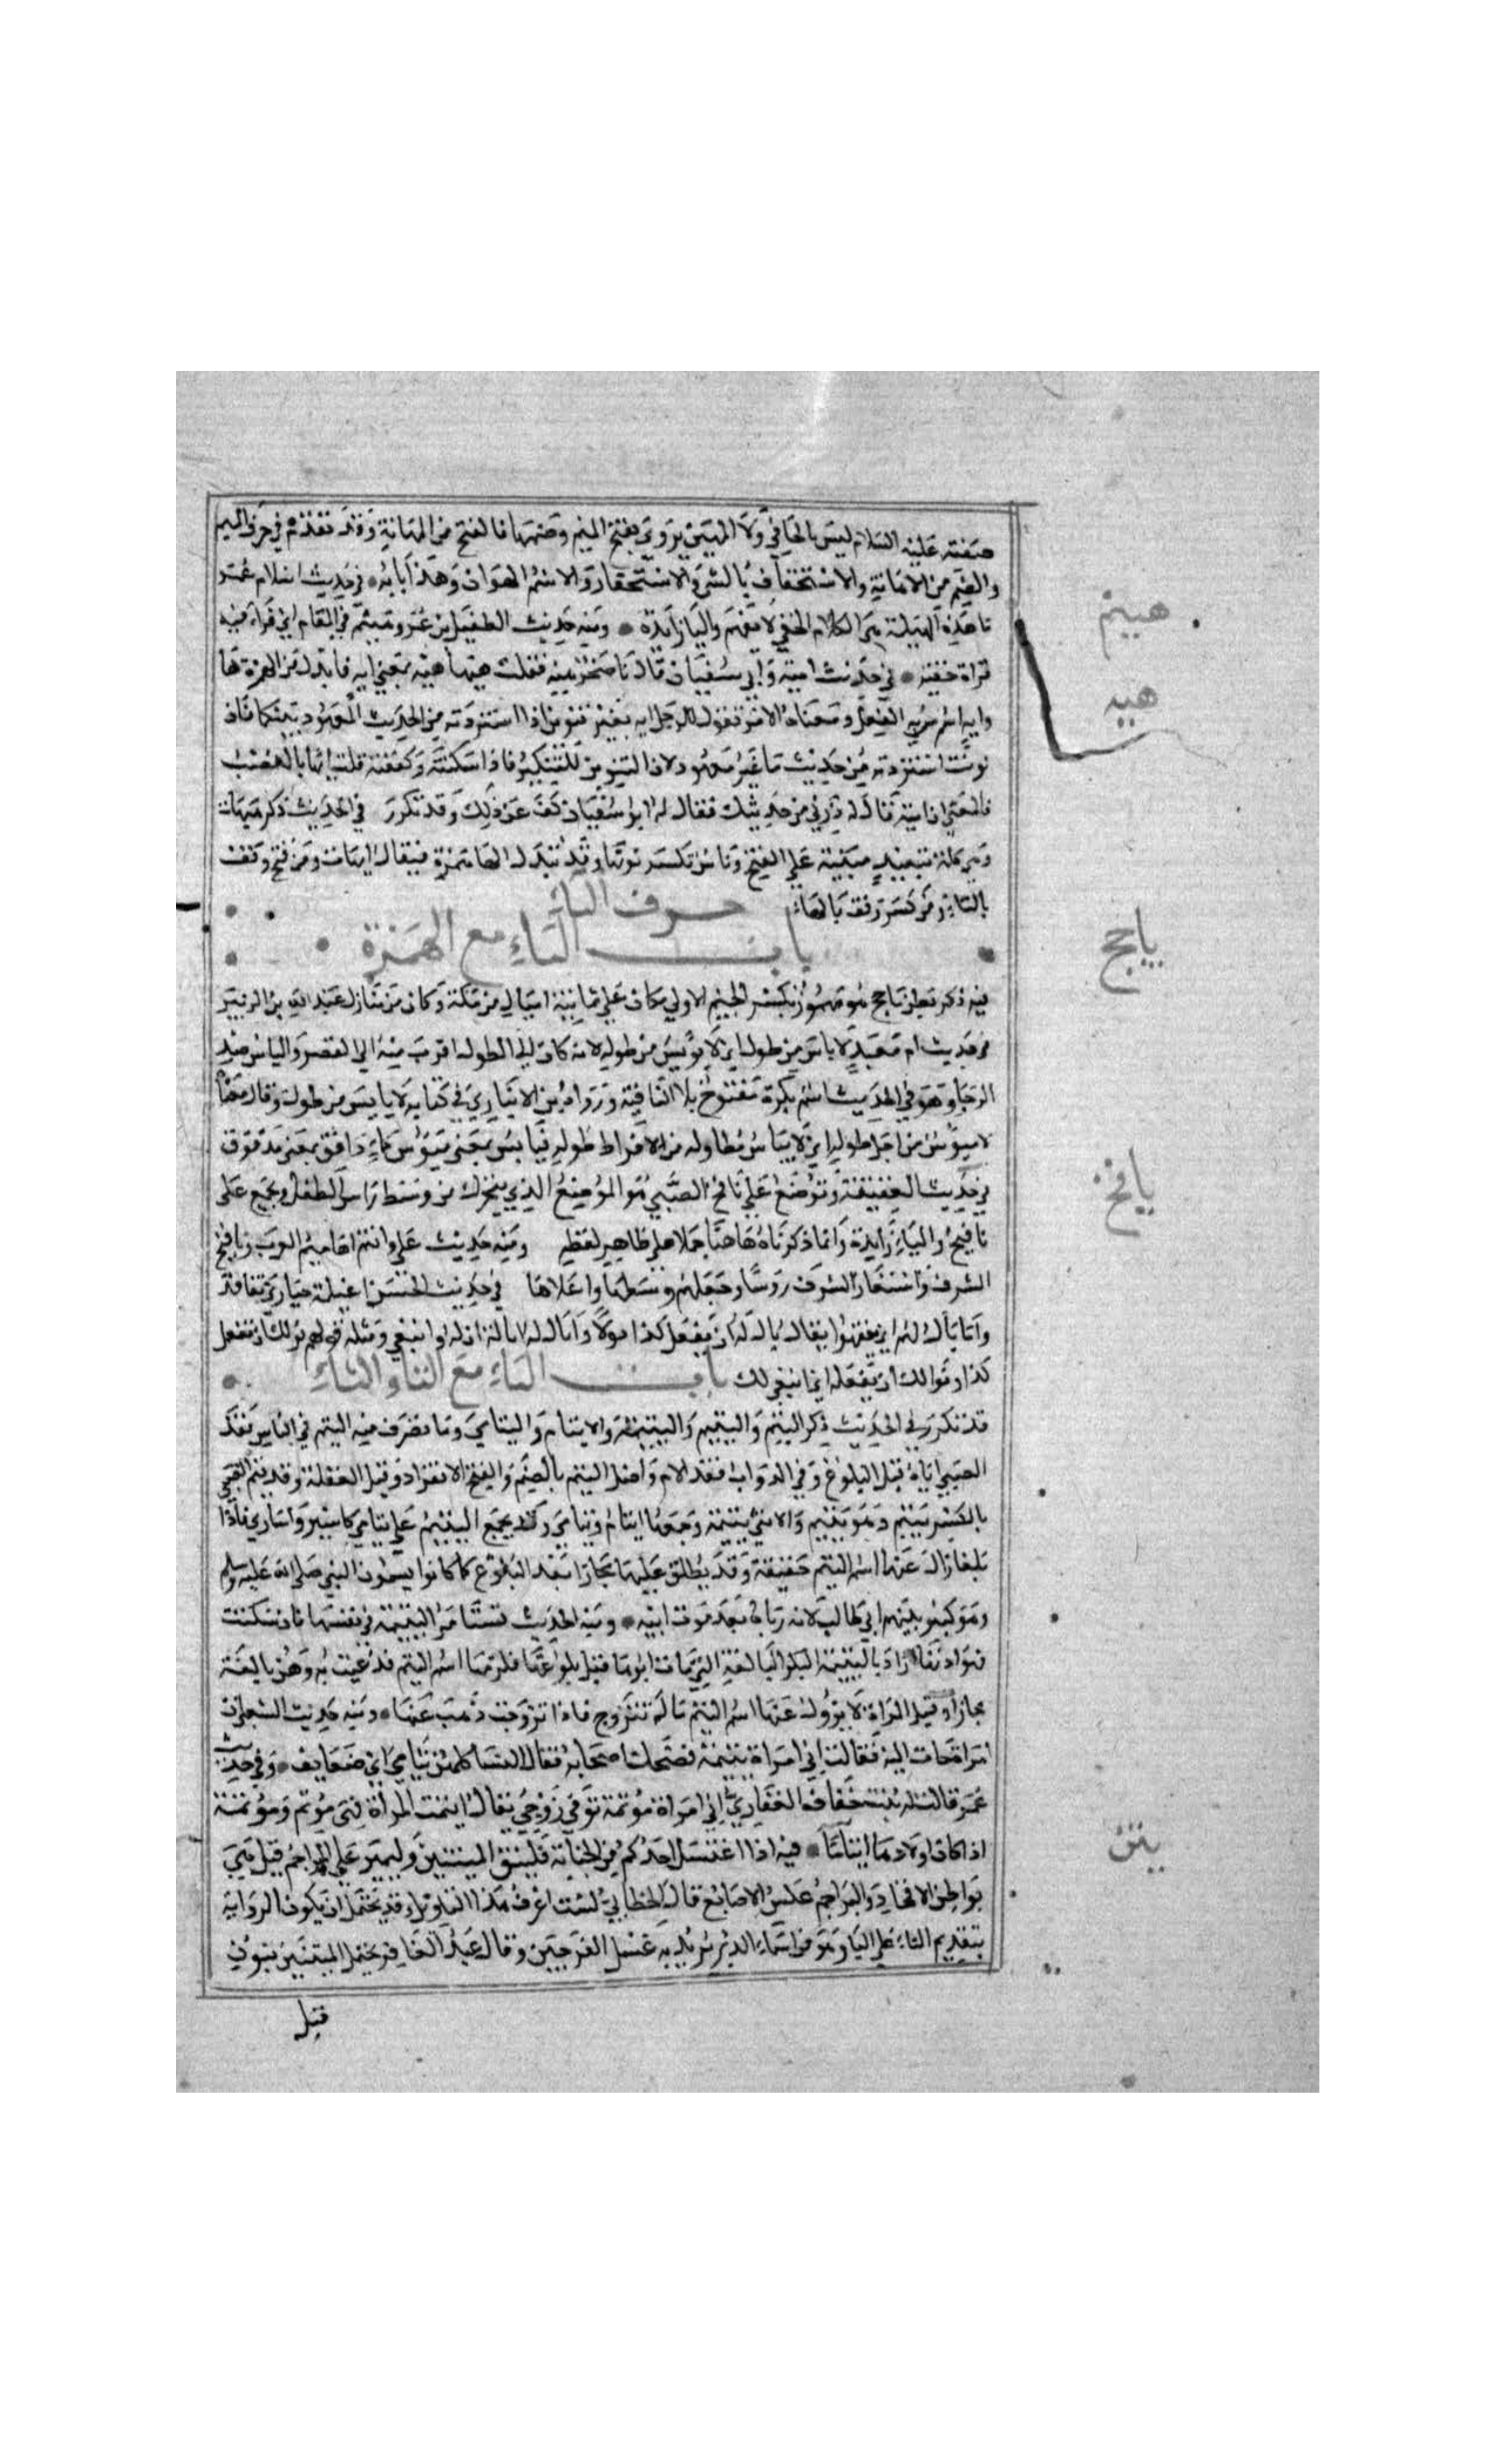 صفته عليه السلام ليس بالجافي ولا المهين يروى بفتح الميم وضمها فالفتح من المهانة وقد تقدم في حرف الميم
والضم من الاهانة والاستخفاف بالشيء والاستحقار والاسم الهوان وهذا بابه في حديث اسلام عمر
ما هذه الهينمة هي الكلام الخفي لا يفهم والياء زايدة ومنه حديث الطفيل بن عمرو هينم في المقام اي قرا فيه
قراة خفية في حديث امية وابي سفيان قال يا صخر هيه فقلت هيها هيه بمعنى ايه فابدل من الهمزة ها
وايه اسم سمي به الفعل ومعناه الامر تقول للرجل ايه بغير تنوين اذا استزدته من الحديث المعهود بينكما فان
نونت استزدته من حديث ما غير معهود لان التنوين للتنكير فاذا سكنته وكففته قلت ايها بالنصب
فالمعنى ان امية قال له زدني من حديثك فقال له ابو سفيان كف عن ذلك وقد تكرر في الحديث ذكر هيهات
وهي كلمة تبعيد مبنية على الفتح وناس تكسر نونها وقد تبدل الها همزة فيقال ايهات ومن فتح وقف
بالتاء ومن كسر وقف بالهاء
حرف الياء
باب الياء مع الهمزة
فيه ذكر بطن ياجج هو مهموز بكسر الجيم الاولى مكان على ثمانية اميال من مكة وكان من منازل عبد الله بن الزبير
في حديث ام معبد لا ياس من طول اي لا يويس من طوله لانه كان الي الطول اقرب منه الى القصر والياس ضد
الرجا وهو في الحديث اسم نكرة مفتوح بلا النافية ورواه ابن الانباري في كتابه لا يايس من طول وقال معناه
لا ميوس من اجل طوله اي لا يياس مطاوله منه لافراط طوله فيايس بمعنى ميؤس كماء دافق بمعنى مدفوق
في حديث العقيقة وتوضع على يافخ الصبي هو الموضع الذي يتحرك من وسط راس الطفل ويجمع على
يافيخ والياء زايدة وانما ذكرناه هاهنا حملا على ظاهر لفظه ومنه حديث علي وانتم لهاميم العرب ويافيخ
الشرف واستعار للشرف روسا وجعلهم وسطها واعلاها في حديث الحسن اغيلمة حيارى تفاقد
وا ما يال لهم ان يفقهوا يقال يال له ان يفعل كذا يولا وايال له ايالة اذ له وانبغى ومثله قولهم نولك ان تفعل
كذا ونوالك ان تفعله اي انبغى لك
باب الياء مع التاء والثاء
قد تكرر في الحديث ذكر اليتم واليتيم واليتيمة والايتام واليتامى وما تصرف منه اليتم في الناس فقد
الصبي اباه قبل البلوغ وفي الدواب فقد الام واصل اليتم بالضم والفتح الانفراد وقيل الغفلة وقد يتم الصبي
بالكسر ييتم فهو يتيم والانثى يتيمة وجمعها ايتام ويتامى وقد يجمع اليتيم على يتامى كاسير واسارى فاذا
بلغا زال عنهما اسم اليتم حقيقة وقد يطلق عليهما مجازا بعد البلوغ كما كانوا يسمون النبي صلى الله عليه وسلم
وهو كبير يتيم ابي طالب لانه رباه بعد موت ابيه ومنه الحديث تستامر اليتيمة في نفسها فان سكتت
فهو اذنها اراد باليتيمة البكر البالغة التي مات ابوها قبل بلوغها فلزمها اسم اليتم فدعيت به وهي بالغة
مجازا وقيل المراة لا يزول عنها اسم اليتم ما لم تتزوج فاذا تزوجت ذهب عنها ومنه حديث الشعبي ان
امراة جات اليه فقالت اني امراة يتيمة فضحك اصحابه فقال النسا كلهن يتامى اي ضعايف وفي حديث
عمر قالت له بنت خفاف الغفاري اني امراة موتمة توفي زوجي يقال ايتمت المراة فهي موتم وموتمة
اذا كان اولادها ايتاما فيه اذا اغتسل احدكم من الجنابة فلينق الميتنين وليمر على البراجم قيل هي
بواطن الافخاذ والبراجم عكس الاصابع قال الخطابي لست اعرف هذا التاويل وقد يحتمل ان يكون الرواية
بتقديم التاء على اليا وهو من اسماء الدبر يريد به غسل الفرجين وقال عبد الغافر يحتمل المنتنين بنون
قبل
هينم
هيه
ياجج
يافخ
يتن